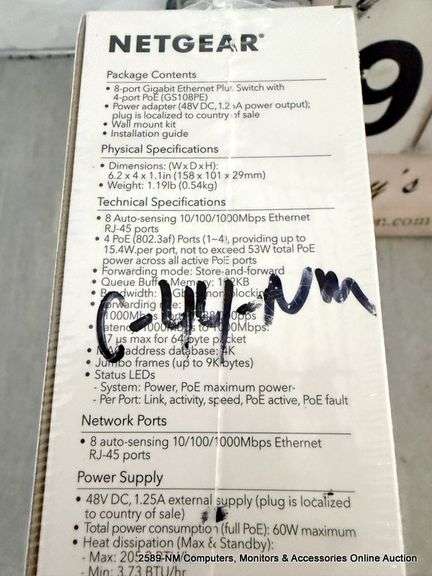 NETGEAR®
Package Contents
• 8-port Gigabit Ethernet Plus Switch with
4-port PoE (GS108PE)
• Power adapter (48V DC, 1.25A power output);
plug is localized to country of sale
• Wall mount kit
• Installation guide
Physical Specifications
• Dimensions: (W x D x H):
6.2 x 4 x 1.1in (158 x 101 x 29mm)
• Weight: 1.19lb (0.54kg)
Technical Specifications
• 8 Auto-sensing 10/100/1000Mbps Ethernet
RJ-45 ports
• 4 PoE (802.3af) Ports (1~4), providing up to
15.4W per port, not to exceed 53W total PoE
power across all active PoE ports
• Forwarding mode: Store-and-forward
• Queue Buffer Memory: 192KB
C-44-NM
max for 64 byte packet
address database: 4K
• Jumbo frames (up to 9K bytes)
• Status LEDs
- System: Power, PoE maximum power-
- Per Port: Link, activity, speed, PoE active, PoE fault
Network Ports
• 8 auto-sensing 10/100/1000Mbps Ethernet
RJ-45 ports
Power Supply
• 48V DC, 1.25A external supply (plug is localized
to country of sale)
• Total power consumption (full PoE): 60W maximum
• Heat dissipation (Max & Standby):
- Max:
- Min: 3.73 BTU/hr
9
y's
n.com
2589-NM Computers, Monitors & Accessories Online Auction